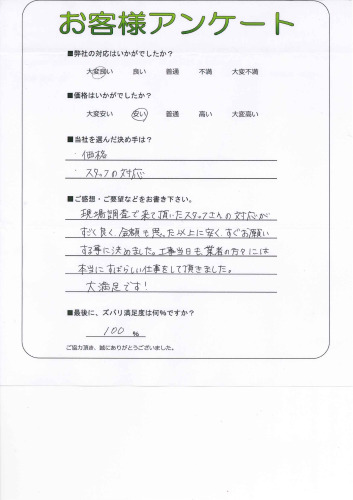 お客様アンケート
■弊社の対応はいかがでしたか?
大変良い 良い 普通 不満 大変不満
■価格はいかがでしたか?
大変安い 安い 普通 高い 大変高い
■当社を選んだ決め手は?
・価格
・スタッフの対応
■ご感想・ご要望などをお書き下さい。
現場調査で来て頂いたスタッフさんの対応が
すごく良く、金額も思った以上に安く、すぐお願い
する事に決めました。工事当日も業者の方々には
本当にすばらしい仕事をして頂きました。
大満足です!
■最後に、ズバリ満足度は何%ですか?
100 %
ご協力頂き、誠にありがとうございました。